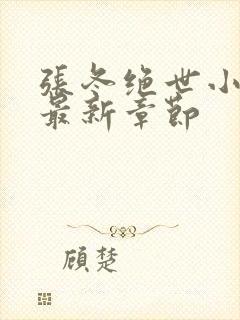 張冬绝世小
最新章節
顾楚